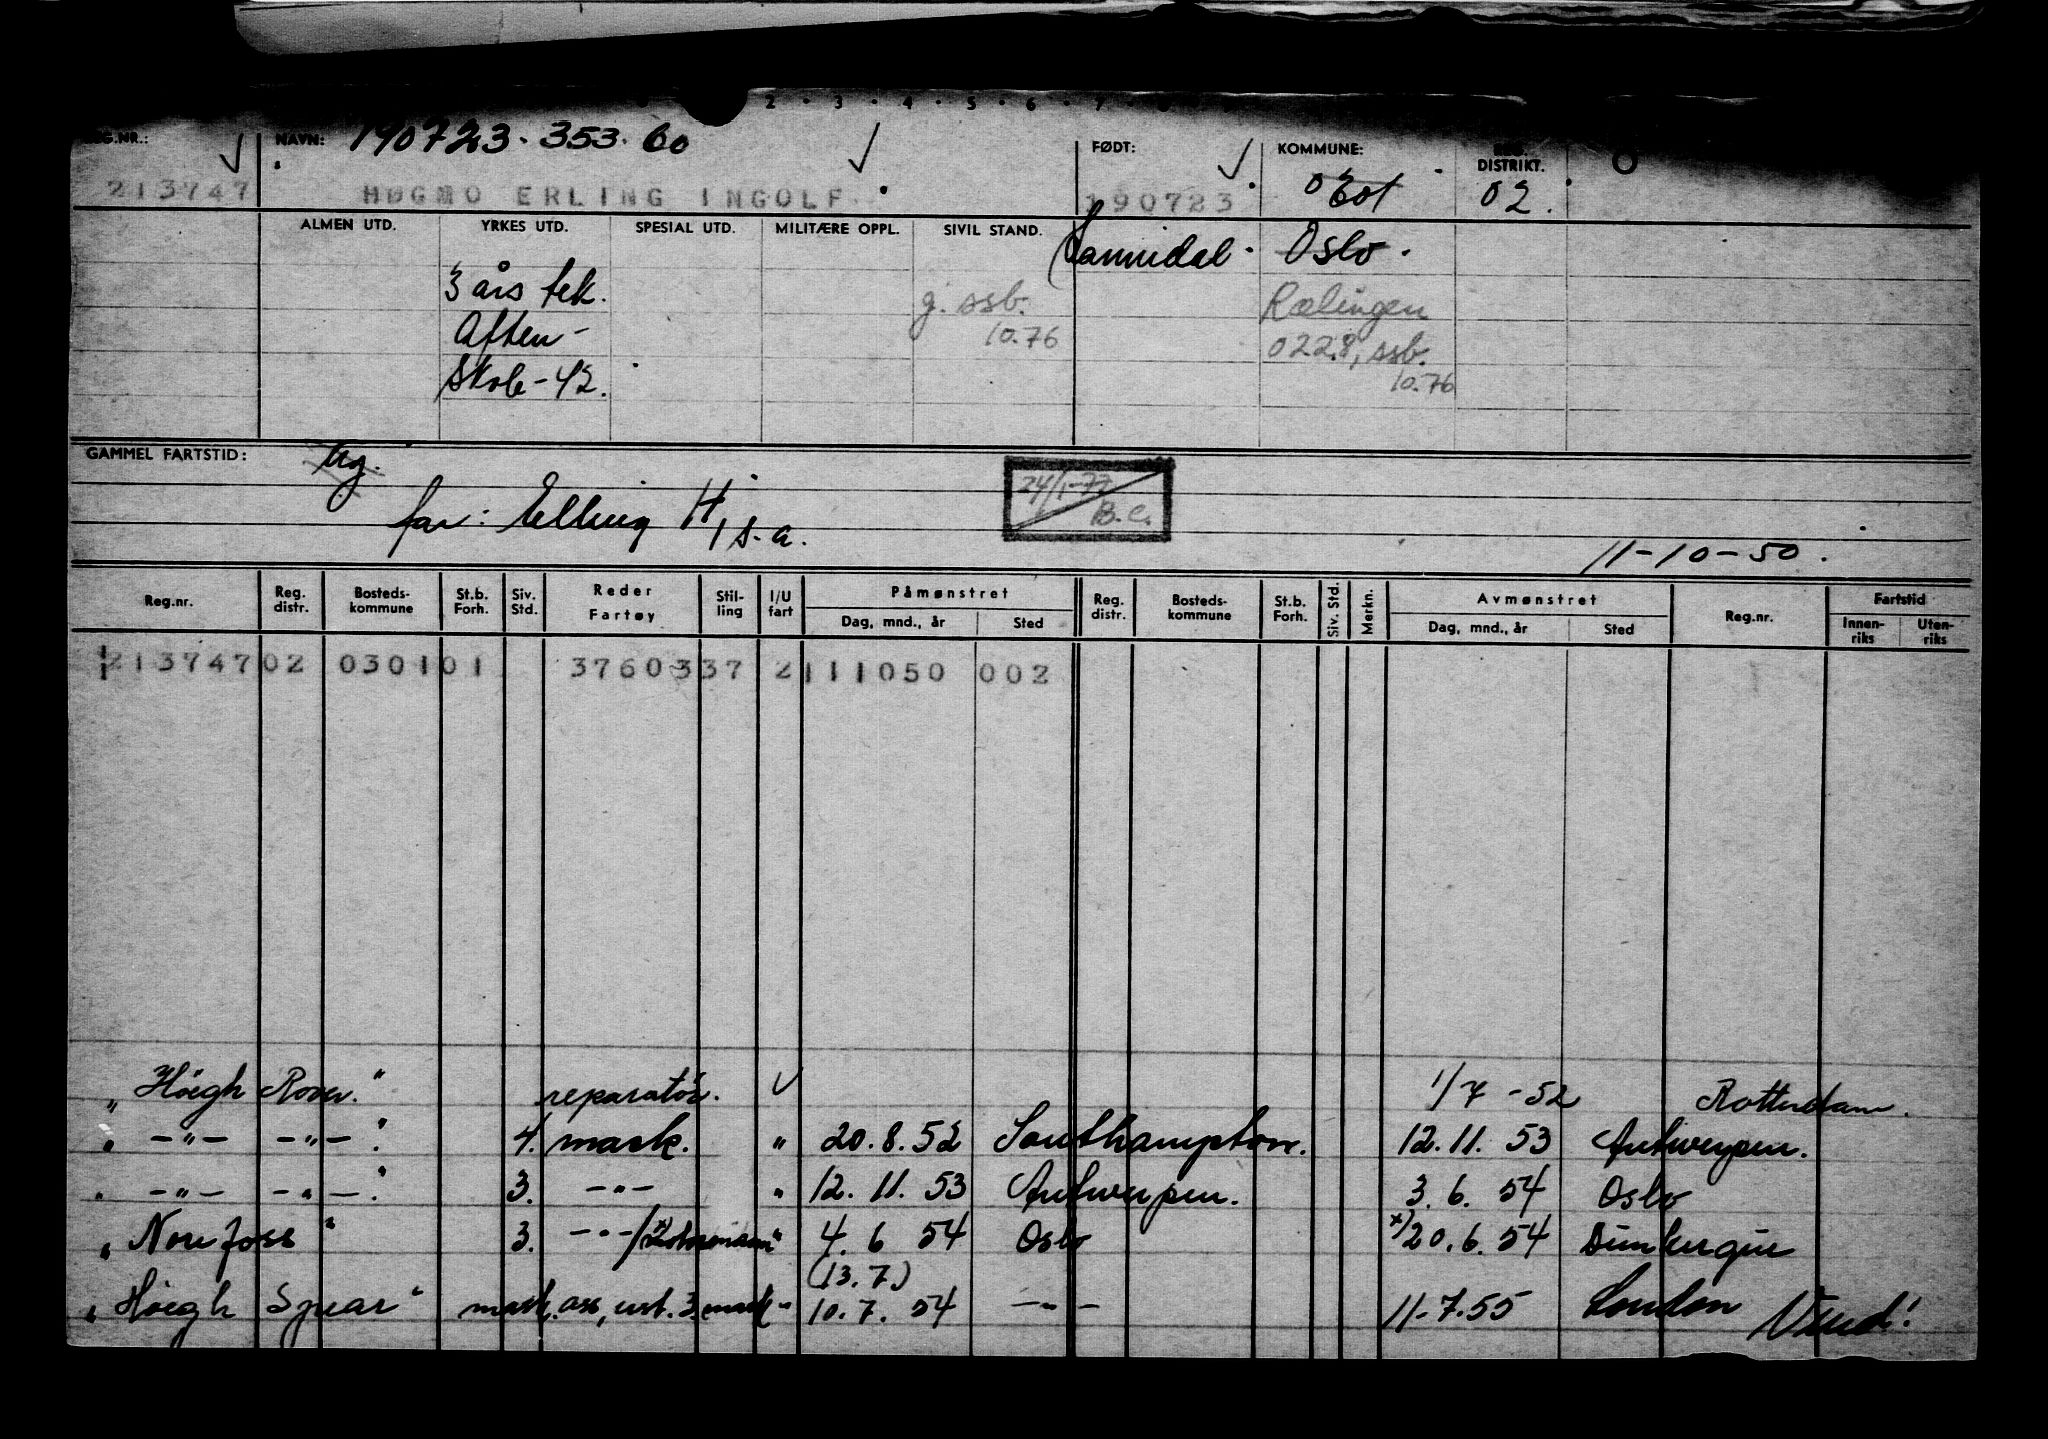 2 · 3 · 4 · 5 · 6 · 7
REG.NR.: NAVN: 190723. 353. 60 FØDT: KOMMUNE: REG. DISTRIKT.
213747 HØGMO ERLING INGOLF. 190723 02.
ALMEN UTD. YRKES UTD. SPESIAL UTD. MILITÆRE OPPL. SIVIL STAND. Sannidal. Oslo.
3 års tek. g. ssb. Rælingen
Aften- 10.76 0228, ssb.
Skole-42. 10.76
GAMMEL FARTSTID:
24/1-77
B.C.
far: Elling H, s.a.
11-10-50.
Reg.nr. Reg. distr. Bosteds-kommune St.b. Forh. Siv. Std. Reder Fartøy Stil-ling I/U fart Påmønstret Dag, mnd., år Sted Reg. distr. Bosteds-kommune St.b. Forh. Siv. Std. Merkn. Avmønstret Dag, mnd., år Sted Reg.nr. Fartstid Innen-riks Uten-riks
213747 02 0301 01 37603 37 2 111050 002
„ Höegh Rover." reparatör. ✓ 1/7 -52 Rotterdam.
„ -"- -"-." 4. mask. " 20.8.52 Southampton. 12.11.53 Antwerpen.
„ -"- -"-." 3. -"- " 12.11.53 Antwerpen. 3.6.54 Oslo
„ Norefoss " 3. -"-/ " 4.6 54 Oslo x/20.6.54 Dunkerque
(13.7.)
„ Höegh Spear" mask. ass, 3. mask - 10.7.54 -"- 11-7.55 London